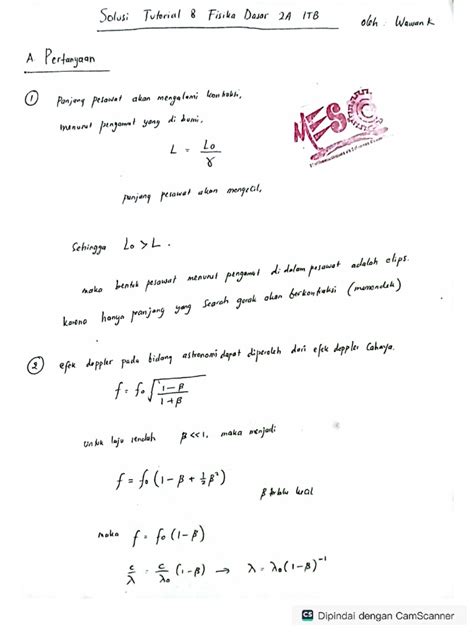 Solusi Tutorial 8 Fisika Dasar 2A ITB
oleh : Wawan K
A. Pertanyaan
① Panjang pesawat akan mengalami kontraksi,
menurut pengamat yang di bumi,
L = Lo / γ
MESC
panjang pesawat akan mengecil,
Sehingga Lo > L .
maka bentuk pesawat menurut pengamat di dalam pesawat adalah elips.
karena hanya panjang yang searah gerak akan berkontraksi (memendek)
② efek doppler pada bidang astronomi dapat diperoleh dari efek doppler cahaya.
f = fo √(1-β / 1+β)
Untuk laju rendah β<<1, maka menjadi
f = fo (1 - β + ½β²)
β
maka f = fo (1-β)
c/λ = c/λo (1-β) → λ = λo (1-β)⁻¹
CS Dipindai dengan CamScanner